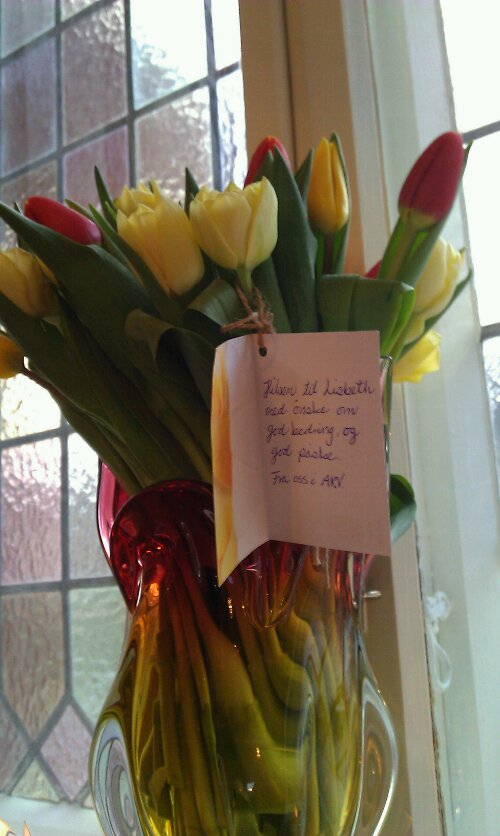 Hilsen til Lisbeth
med ønske om
god bedring, og
god påske.
Fra oss i ARV.